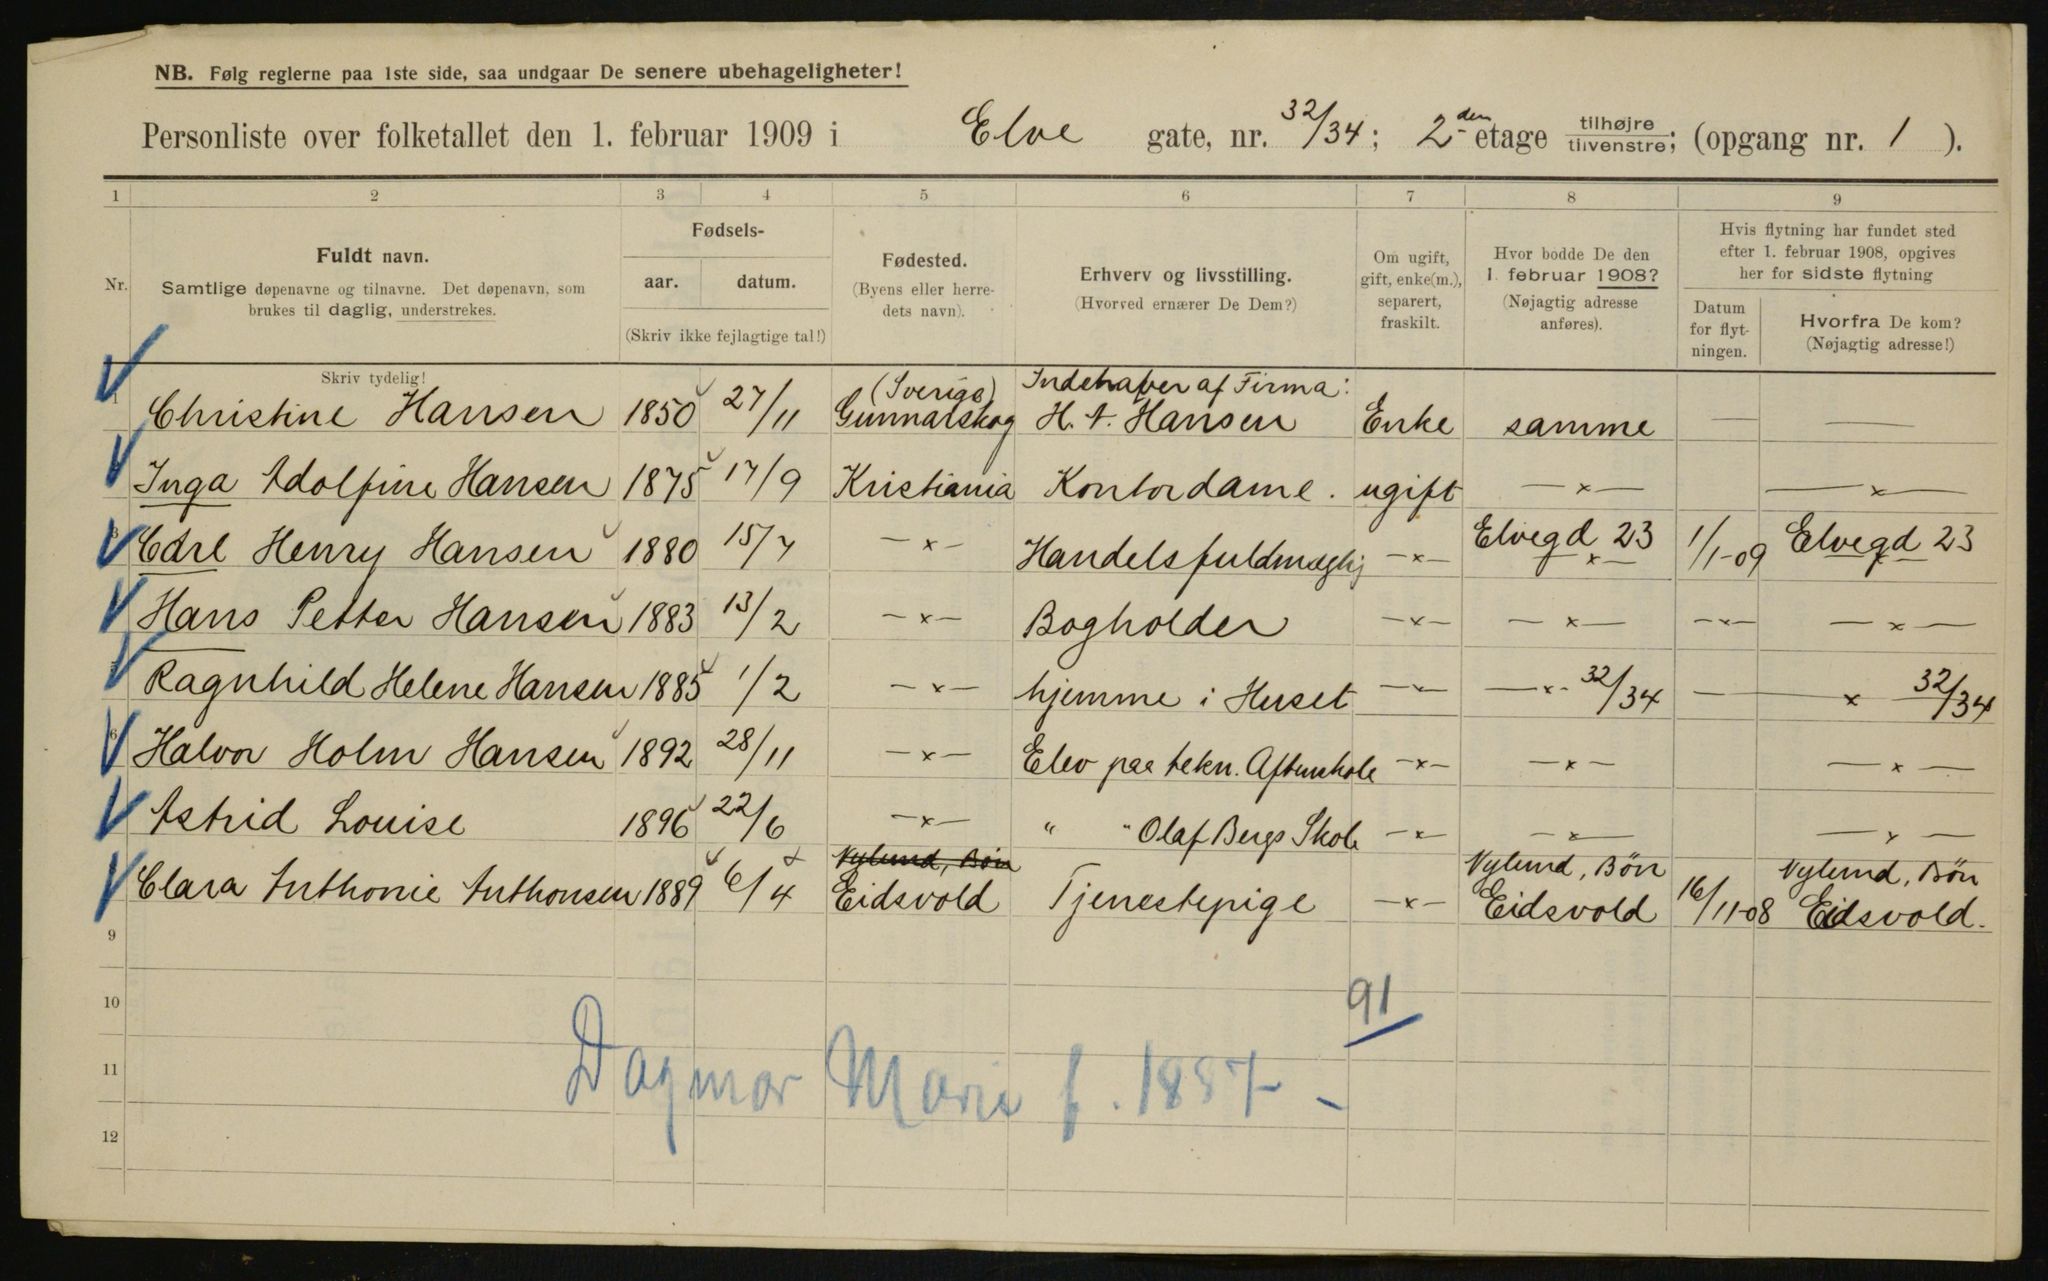 NB. Følg reglerne paa 1ste side, saa undgaar De senere ubehageligheter!
Personliste over folketallet den 1. februar 1909 i Elve gate, nr. 32/34; 2den etage tilhøjre tilvenstre; (opgang nr. 1 ).
1 2 3 4 5 6 7 8 9
Nr.
Fuldt navn.
Samtlige døpenavne og tilnavne. Det døpenavn, som
brukes til daglig, understrekes.
Skriv tydelig!
Fødsels-
aar. datum.
(Skriv ikke fejlagtige tal!)
Fødested.
(Byens eller herre-
dets navn).
Erhverv og livsstilling.
(Hvorved ernærer De Dem?)
Om ugift,
gift, enke(m.),
separert,
fraskilt.
Hvor bodde De den
1. februar 1908?
(Nøjagtig adresse
anføres).
Hvis flytning har fundet sted
efter 1. februar 1908, opgives
her for sidste flytning
Datum
for flyt-
ningen.
Hvorfra De kom?
(Nøjagtig adresse!)
(Sverige) Indehaver af Firma:
1 Christine Hansen 1850 27/11 Gunnarskog H. A. Hansen Enke samme — —
Inga Adolfine Hansen 1875 17/9 Kristiania Kontordame. ugift —x— —x—
3 Carl Henry Hansen 1880 15/7 —x— Handelsfuldmægtig —x— Elvegd 23 —x— 1/1-09 Elvegd 23 —x—
Hans Petter Hansen 1883 13/2 —x— Bogholder —x— —x— —x— —x—
5 Ragnhild Helene Hansen 1885 1/2 —x— hjemme i Huset —x— —x— 32/34 — —x— 32/34
6 Halvor Holm Hansen 1892 28/11 —x— Elev paa tekn. Aftenskole —x— —x— —x—
Astrid Louise 1896 22/6 —x— " " Olaf Bergs Skole —x— —x— —x—
Nylund, Bøn Nylund, Bøn Nylund, Bøn
Clara Anthonie Anthonsen 1889 6/4 Eidsvold Tjenestepige —x— Eidsvold 16/11-08 Eidsvold.
9
10
91
11
Dagmar Marie f. 1887 -
12